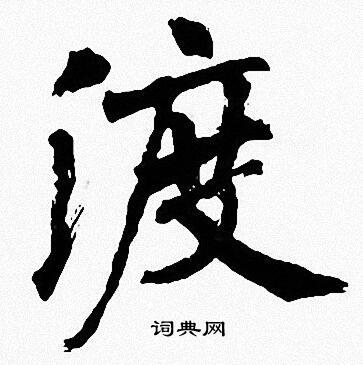 渡
词典网